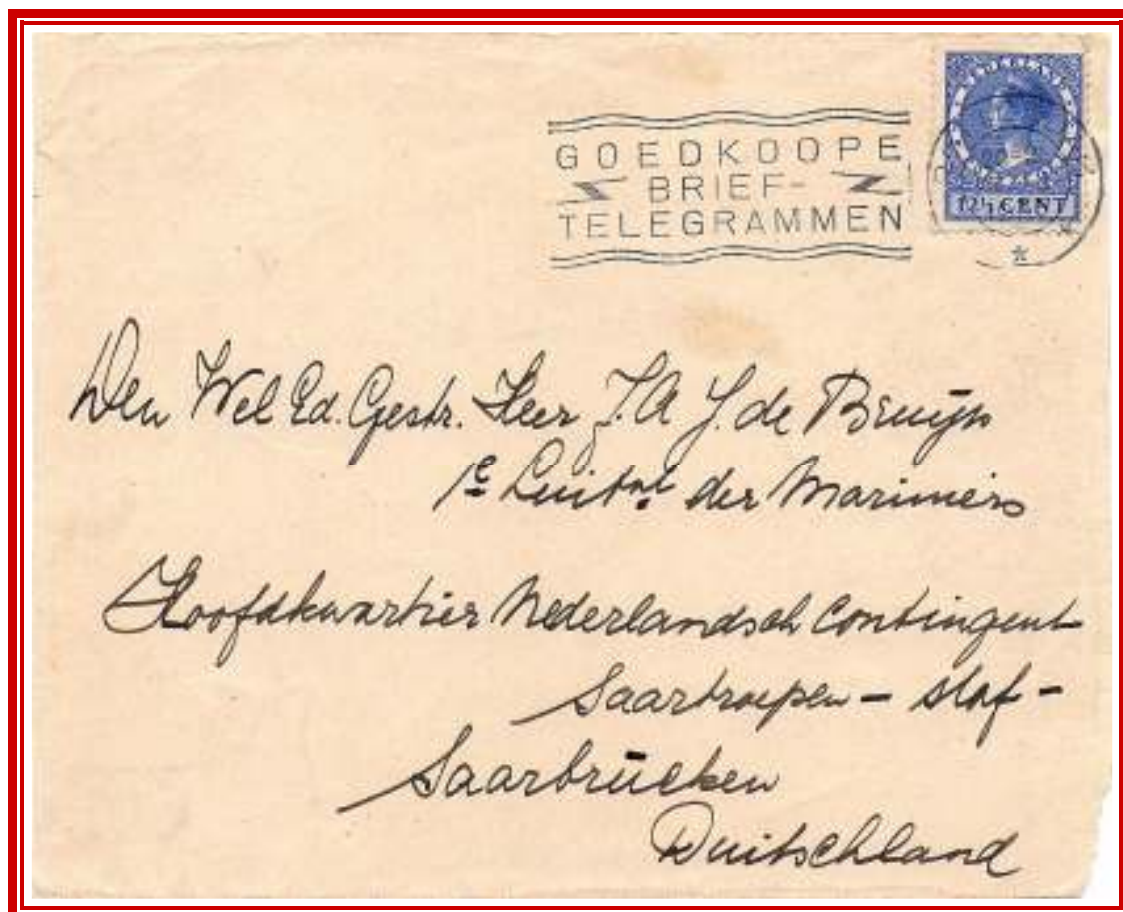 GOEDKOOPE
BRIEF-
TELEGRAMMEN
12½ CENT
Den Wel Ed. Gestr. Heer J. A. J. de Bruijn
1e Luitnt der Mariniers
Hoofdkwartier Nederlandsch Contingent
Saartroepen – Staf –
Saarbrücken
Duitschland